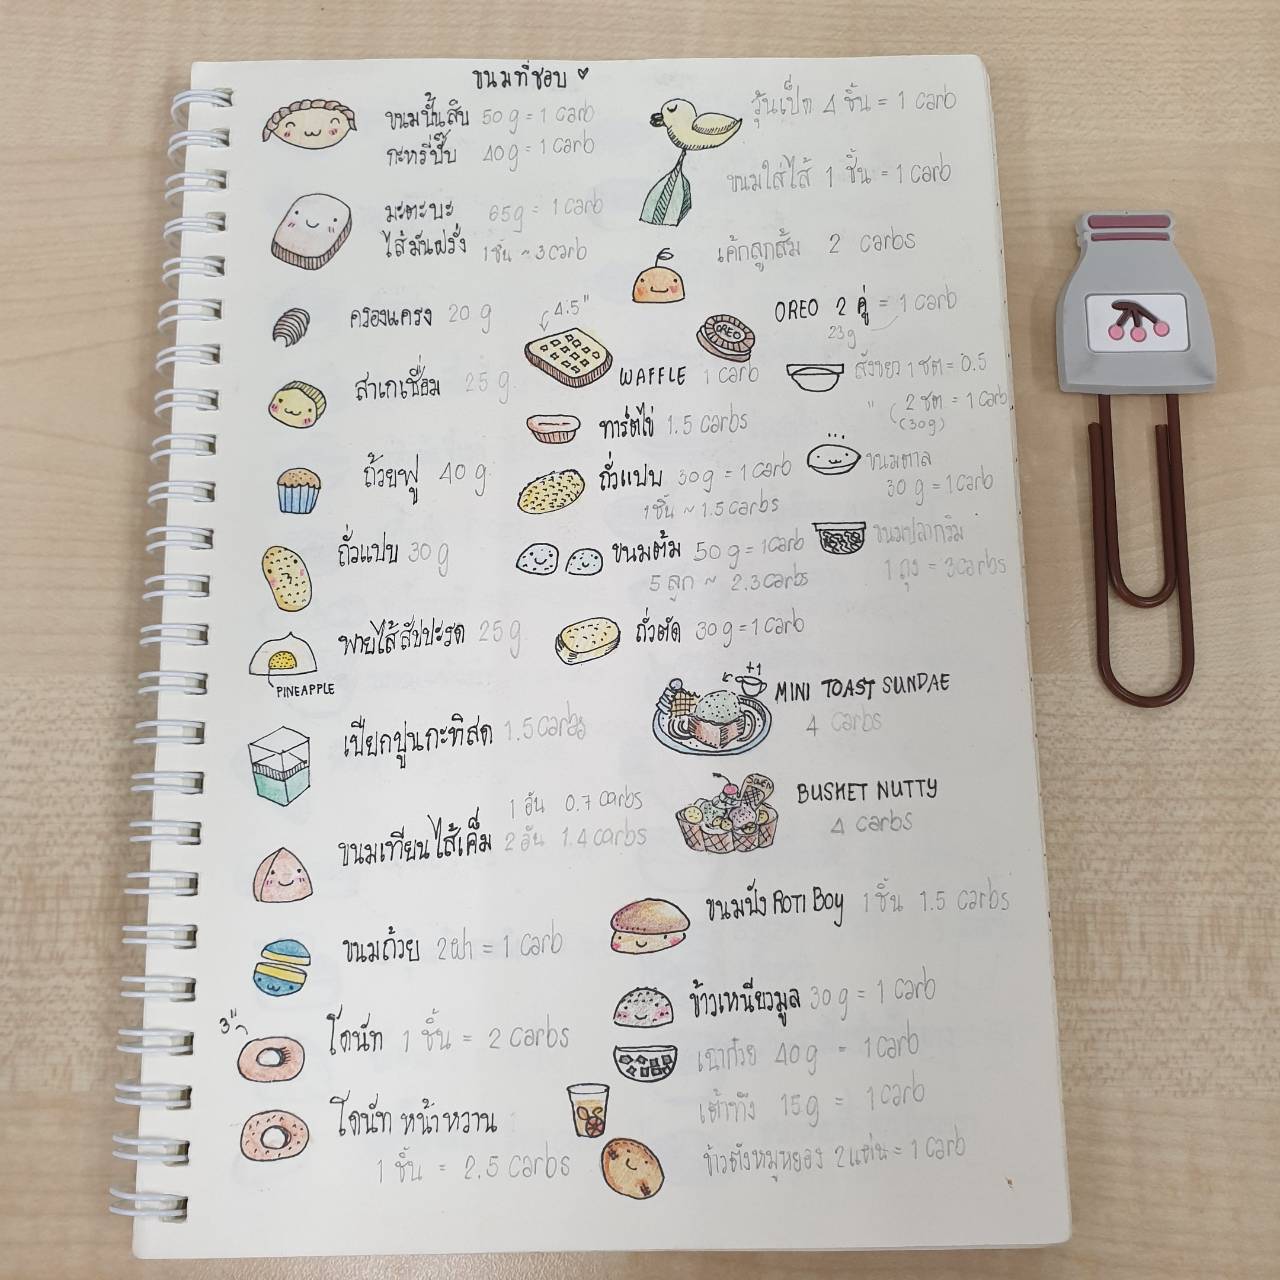 ขนมที่ชอบ ♡
ขนมปั้นสิบ 50 g = 1 carb
กะหรี่ปั๊บ 40 g = 1 carb
มะตะบะ 65 g = 1 carb
ไส้มันฝรั่ง 1 ชิ้น ~ 3 carb
ครองแครง 20 g
สาเกเชื่อม 25 g
ถ้วยฟู 40 g
ถั่วแปบ 30 g
พายไส้สัปปะรด 25 g
PINEAPPLE
เปียกปูนกะทิสด 1.5 carbs
1 อัน 0.7 carbs
ขนมเทียนไส้เค็ม 2 อัน 1.4 carbs
ขนมถ้วย 2 ฝา = 1 carb
3"
โดนัท 1 ชิ้น = 2 carbs
โดนัทหน้าหวาน
1 ชิ้น = 2.5 carbs
วุ้นเป็ด 4 ชิ้น = 1 carb
ขนมใส่ไส้ 1 ชิ้น = 1 carb
เค้กลูกส้ม 2 carbs
OREO
OREO 2 คู่ = 1 carb
23g
4.5"
WAFFLE 1 carb
สังขยา 1 ชต = 0.5
" 2 ชต = 1 carb
(30g)
ทาร์ตไข่ 1.5 carbs
ถั่วแปบ 30 g = 1 carb
1 ชิ้น ~ 1.5 carbs
ขนมตาล
30 g = 1 carb
ขนมต้ม 50 g = 1 carb
5 ลูก ~ 2.3 carbs
ขนมปลากริม
1 ถุง = 3 carbs
ถั่วตัด 30 g = 1 carb
+1
MINI TOAST SUNDAE
4 carbs
BUSKET NUTTY
4 carbs
ขนมปัง ROTI BOY 1 ชิ้น 1.5 carbs
ข้าวเหนียวมูล 30 g = 1 carb
เฉาก๊วย 40 g = 1 carb
เต้าทึง 15 g = 1 carb
ข้าวตังหมูหยอง 2 แผ่น = 1 carb